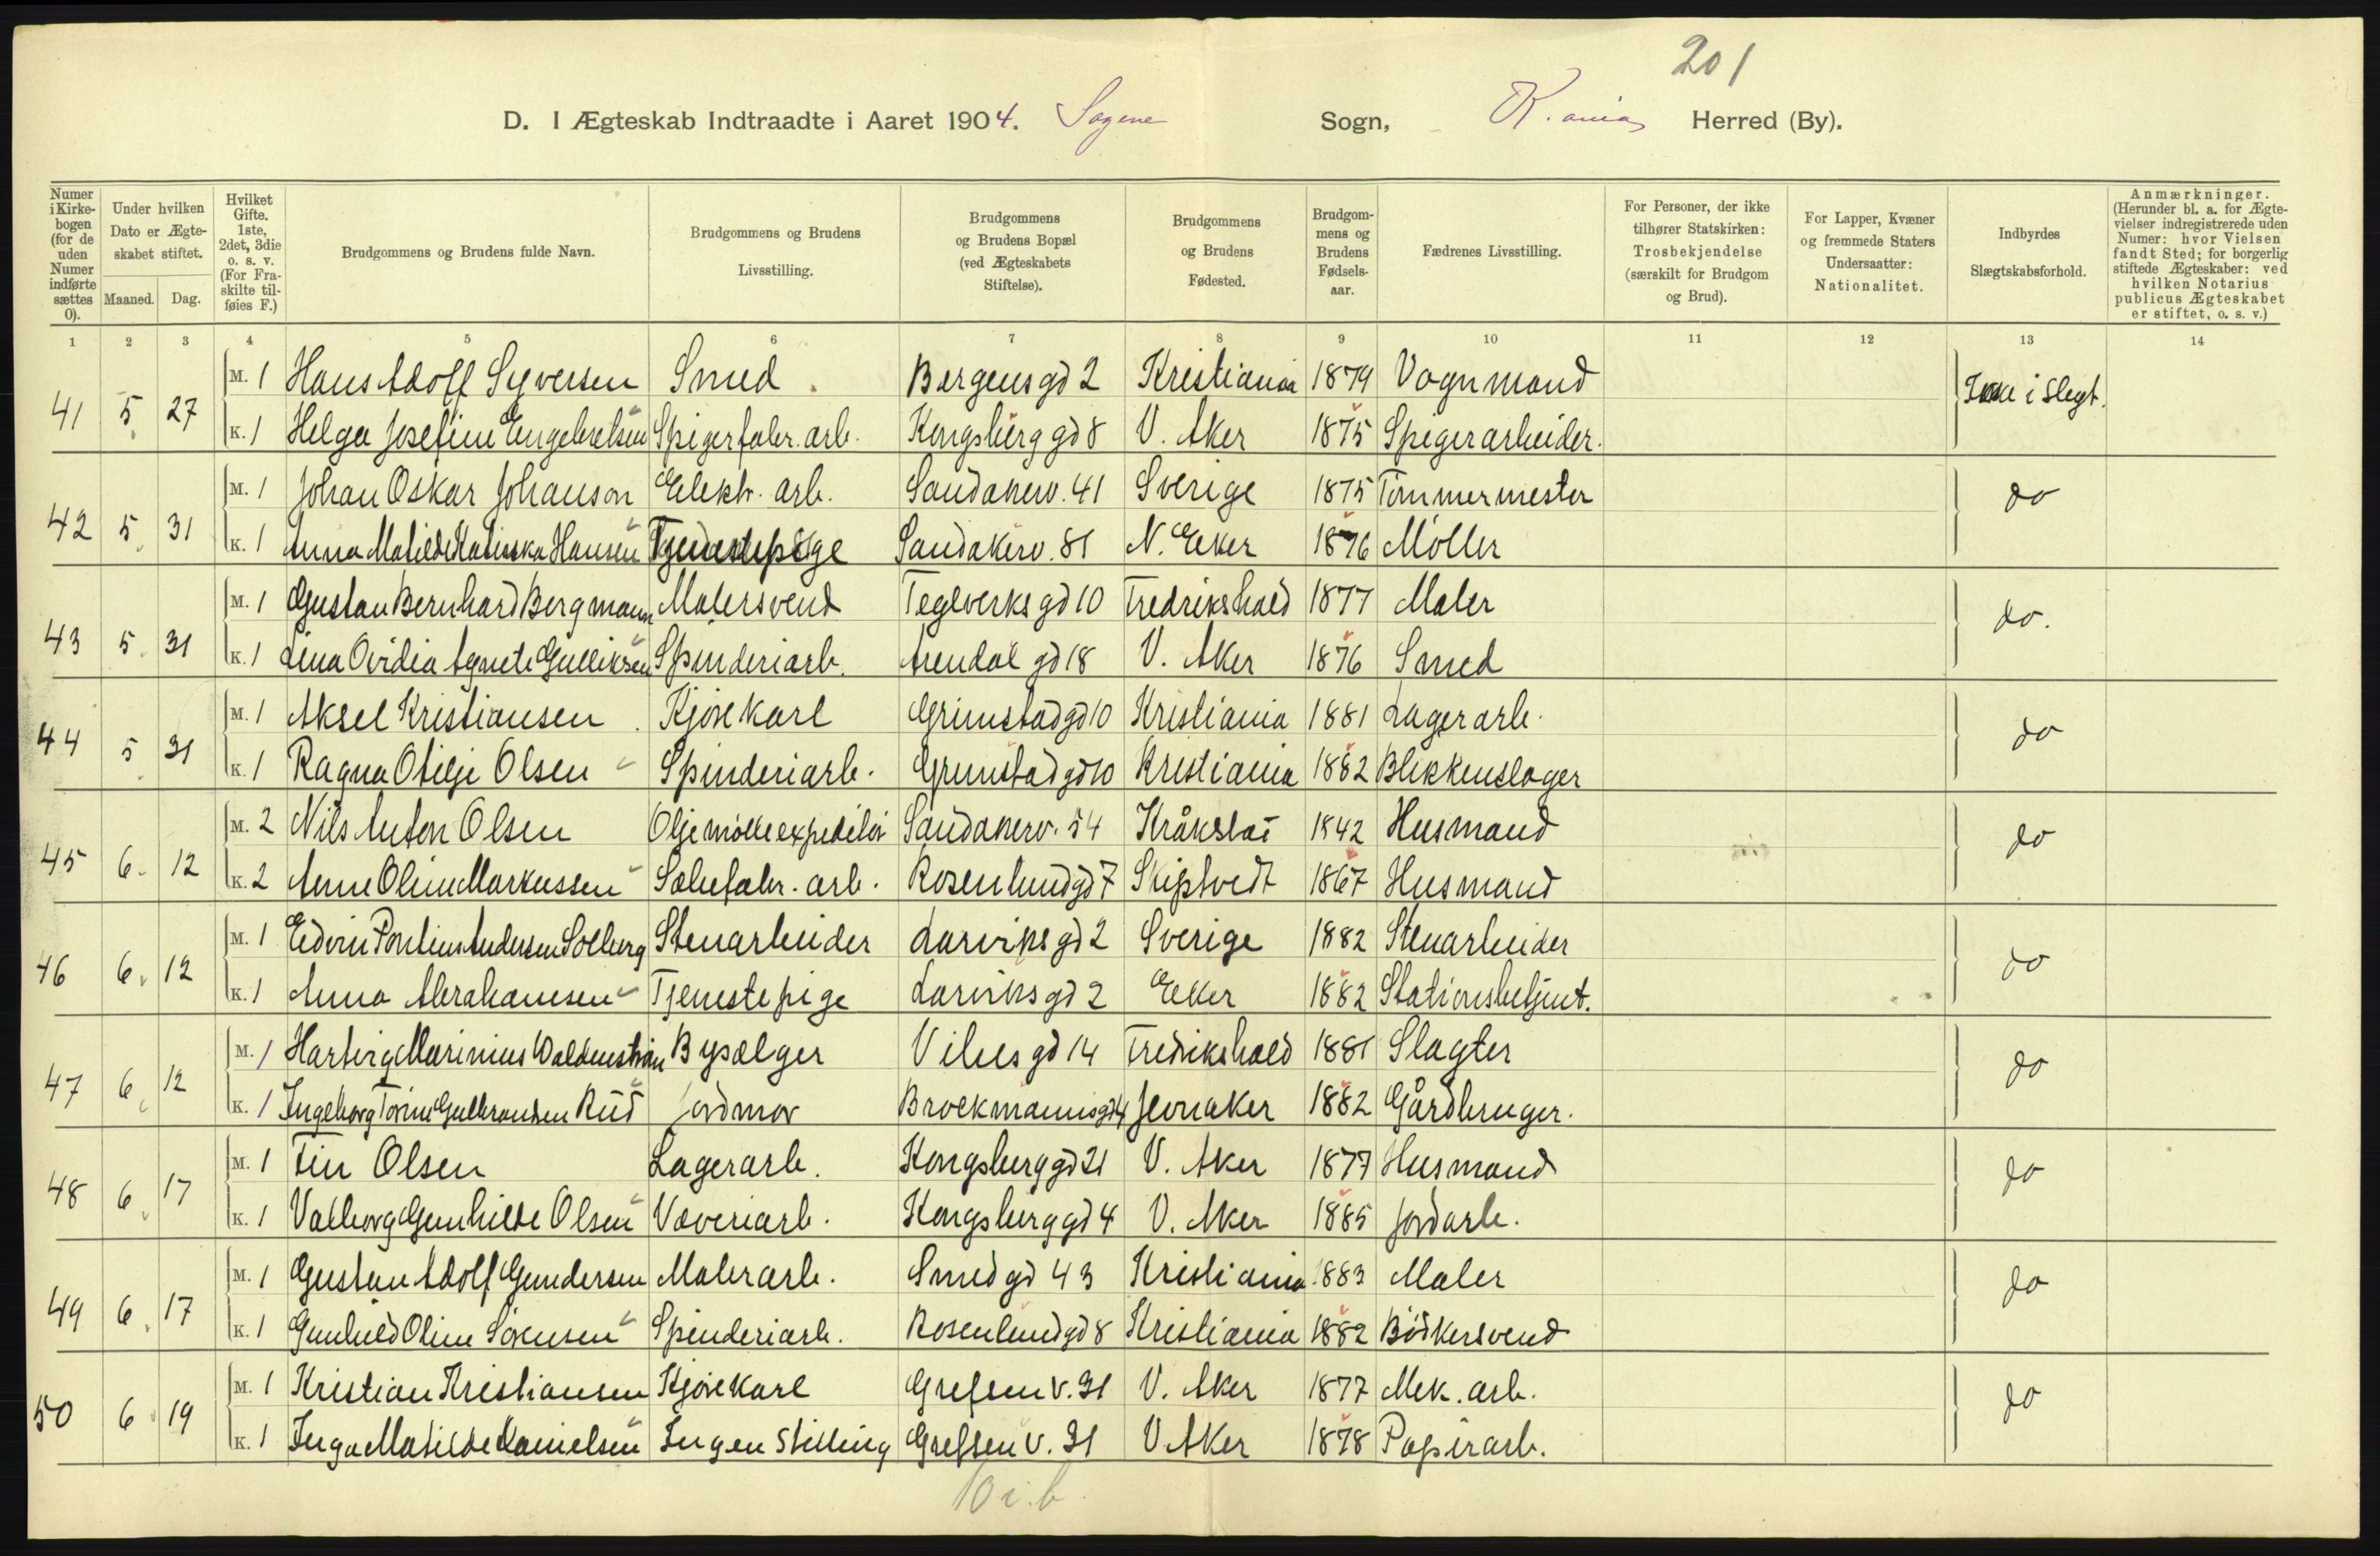 201
D. I Ægteskab Indtraadte i Aaret 1904. Sagene Sogn, K.ania Herred (By).
Numer i Kirke-bogen (for de uden Numer indførte sættes 0).
Under hvilken Dato er Ægte-skabet stiftet.
Maaned. Dag.
Hvilket Gifte. 1ste, 2det, 3die o. s. v. (For Fra-skilte til-føies F.)
Brudgommens og Brudens fulde Navn.
Brudgommens og Brudens Livsstilling.
Brudgommens og Brudens Bopæl (ved Ægteskabets Stiftelse).
Brudgommens og Brudens Fødested.
Brudgom-mens og Brudens Fødsels-aar.
Fædrenes Livsstilling.
For Personer, der ikke tilhører Statskirken: Trosbekjendelse (særskilt for Brudgom og Brud).
For Lapper, Kvæner og fremmede Staters Undersaatter: Nationalitet.
Indbyrdes Slægtskabsforhold.
Anmærkninger. (Herunder bl. a. for Ægte-vielser indregistrerede uden Numer: hvor Vielsen fandt Sted; for borgerlig stiftede Ægteskaber: ved hvilken Notarius publicus Ægteskabet er stiftet, o. s. v.)
1 2 3 4 5 6 7 8 9 10 11 12 13 14
M. 1 Hans Adolf Syversen Smed Bergensgd 2 Kristiania 1879 Vognmand
41 5 27 Ikke i Slegt.
K. 1 Helga Josefine Engebretsen Spigerfabr. arb. Kongsberg gd 8 V. Aker 1875 Spigerarbeider.
M. 1 Johan Oskar Johanson Elektr. arb. Sandakerv. 41 Sverige 1875 Tømmermester
42 5 31 do
K. 1 Anna Matilde Katinka Hansen Tjenestepige Sandakerv. 81 N. Eker 1876 Möller
M. 1 Gustav Bernhard Bergmann Malersvend Teglverksgd 10 Fredrikshald 1877 Maler
43 5 31 do.
K. 1 Lina Ovidia Agnete Gulliksen Spinderiarb. Arendal gd 18 V. Aker 1876 Smed
M. 1 Aksel Kristiansen Kjørekarl Grimstad gd 10 Kristiania 1881 Lagerarb.
44 5 31 do
K. 1 Ragna Otilje Olsen Spinderiarb. Grimstad gd 10 Kristiania 1882 Blikkenslager
M. 2 Nils Anton Olsen Oljemølleexpeditör Sandakerv. 54 Kråkstad 1842 Husmand
45 6 12 do
K. 2 Anne Oline Markussen Sæbefabr. arb. Rosenlundgd 7 Skiptvedt 1867 Husmand
M. 1 Edvin Pontius Andersen Solberg Stenarbeider Larviksgd 2 Sverige 1882 Stenarbeider
46 6 12 do
K. 1 Anna Abrahamsen Tjenestepige Larviksgd 2 Eker 1882 Stationsbetjent.
M. 1 Hartvig Marinius Waldenström Bysælger Vibesgd 14 Fredrikshald 1881 Slagter
47 6 12 do
K. 1 Ingeborg Torine Gulbrandsen Rud Jordmor Brockmannsgd 4 Jevnaker 1882 Gårdbruger.
M. 1 Fin Olsen Lagerarb. Kongsberg gd 21 V. Aker 1877 Husmand
48 6 17 do
K. 1 Valborg Gunhilde Olsen Væveriarb. Kongsberg gd 4 V. Aker 1885 Jordarb.
M. 1 Gustav Adolf Gundersen Malerarb. Smedgd 43 Kristiania 1883 Maler
49 6 17 do
K. 1 Gunhild Oline Sørensen Spinderiarb. Rosenlundgd 8 Kristiania 1882 Bödkersvend
M. 1 Kristian Kristiansen Kjørekarl Grefsen v. 31 V. Aker 1877 Mek. arb.
50 6 19 do
K. 1 Inga Matilde Danielsen Ingen Stilling Grefsen v. 31 V Aker 1878 Papirarb.
10 i.b.